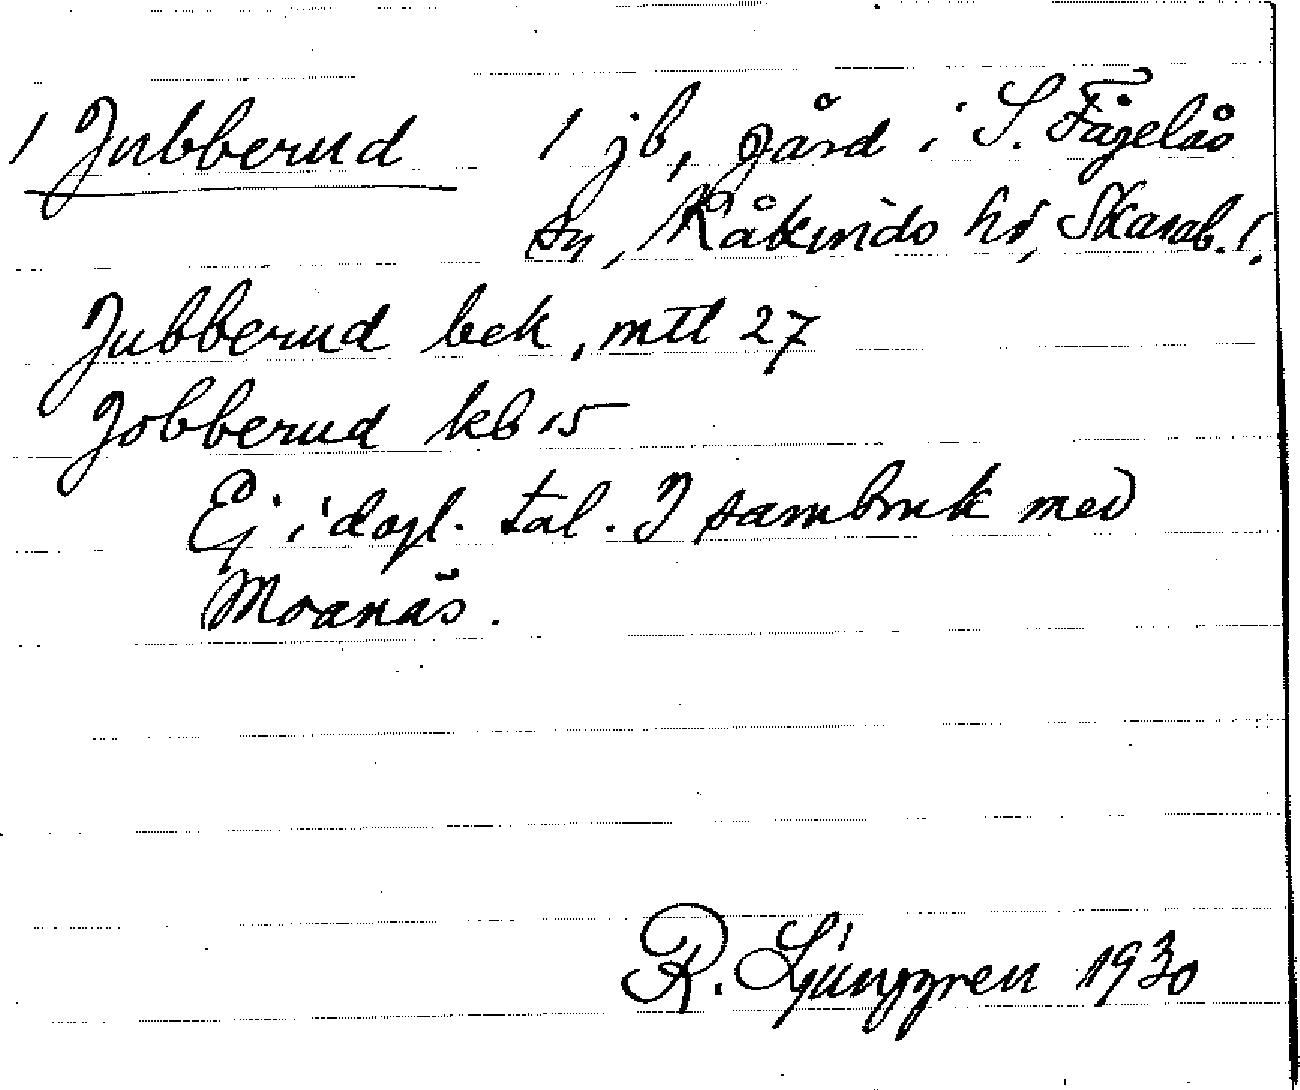 / Jubberud / jb, gård i S. Fågelås
sn, Råkinds hd, Skarab. l.
Jubberud bek, mtl 27
Jobberud kb 15
Ej i dagl. tal. I sambruk med
Moanäs.
R. Ljunggren 1930